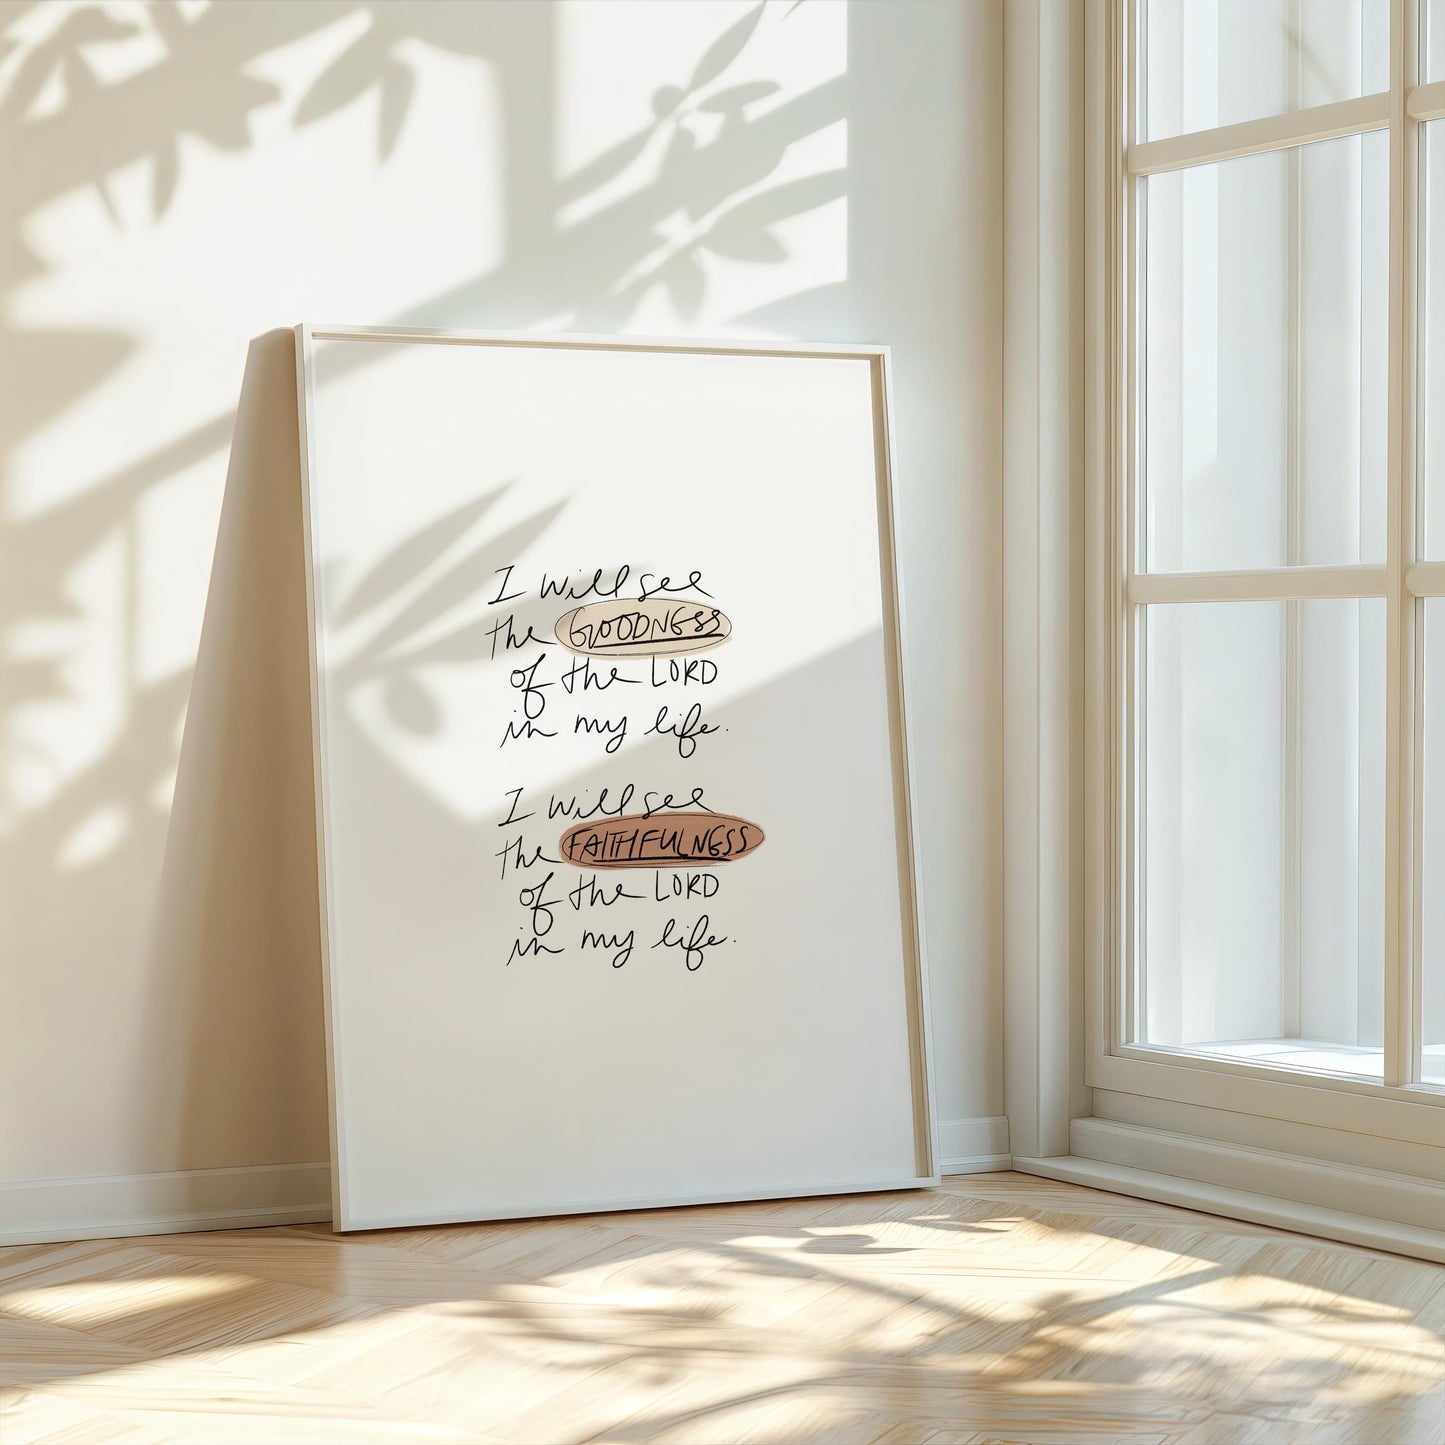 I will see
the GOODNESS
of the LORD
in my life.
I will see
the FAITHFULNESS
of the LORD
in my life.